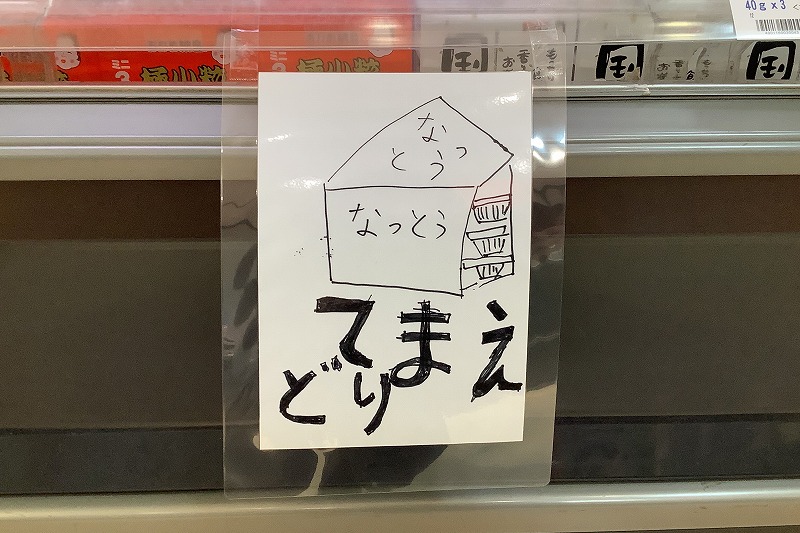 40g x 3
ミニ3
極小粒
極小粒
国
国
なっ
とう
なっとう
てまえ
どり